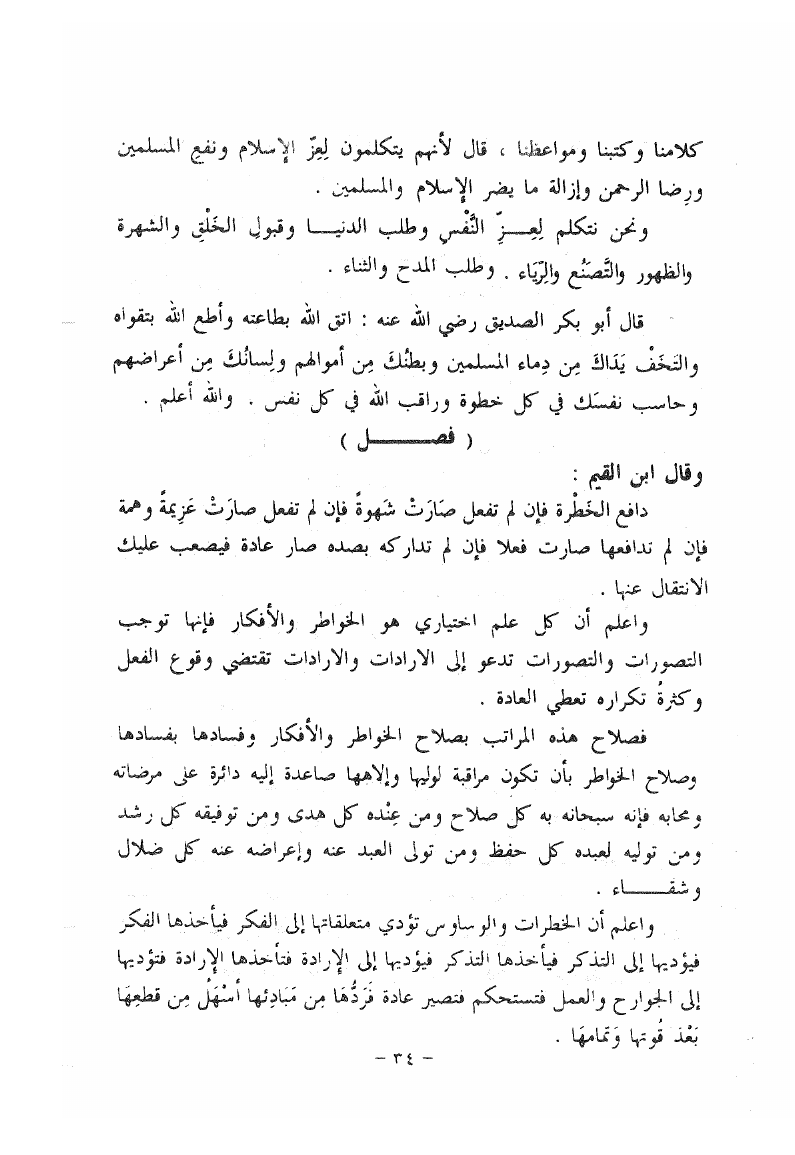 كلامنا وكتبنا ومواعظنا ، قال لأنهم يتكلمون لِعِزّ الإسلام ونفع المسلمين
ورِضا الرحمن وإزالة ما يضر الإسلام والمسلمين .
ونحن نتكلم لِعِـــزِّ النَّفْسِ وطلب الدنيـــا وقبولِ الخَلْقِ والشهرة
والظهور والتَّصَنُّع والرِّيَاء . وطلب المدح والثناء .
قال أبو بكر الصديق رضي الله عنه : اتق الله بطاعته وأطع الله بتقواه
والتَخَفْ يَدَاكَ مِن دِماء المسلمين وبطنُكَ مِن أموالهم ولِسانُكَ مِن أعراضهم
وحاسب نفسَك في كل خطوة وراقب الله في كل نفس . والله أعلم .
( فصــــــل )
وقال ابن القيم :
دافع الخَطْرة فإن لم تفعل صَارَتْ شَهوةً فإن لم تفعل صارَتْ عَزِيمةً وهمة
فإن لم تدافعها صارت فعلا فإن لم تداركه بصده صار عادة فيصعب عليك
الانتقال عنها .
واعلم أن كل علم اختياري هو الخواطر والأفكار فإنها توجب
التصورات والتصورات تدعو إلى الارادات والارادات تقتضي وقوع الفعل
وكثرةُ تكراره تعطي العادة .
فصلاح هذه المراتب بصلاح الخواطر والأفكار وفسادها بفسادها
وصلاح الخواطر بأن تكون مراقبة لوليها وإلاهها صاعدة إليه دائرة على مرضاته
ومحابه فإنه سبحانه به كل صلاح ومن عِنْده كل هدى ومن توفيقه كل رشد
ومن توليه لعبده كل حفظ ومن تولى العبد عنه وإعراضه عنه كل ضلال
وشقـــــاء .
واعلم أن الخطرات والوساوس تؤدي متعلقاتها إلى الفكر فيأخذها الفكر
فيؤديها إلى التذكر فيأخذها التذكر فيؤديها إلى الإرادة فتأخذها الإرادة فتؤديها
إلى الجوارح والعمل فتستحكم فتصير عادة فَرَدُّهَا مِن مَبَادِئها أسْهَلُ مِن قطعِهَا
بَعْدَ قُوتها وَتمامهَا .
– ٣٤ –